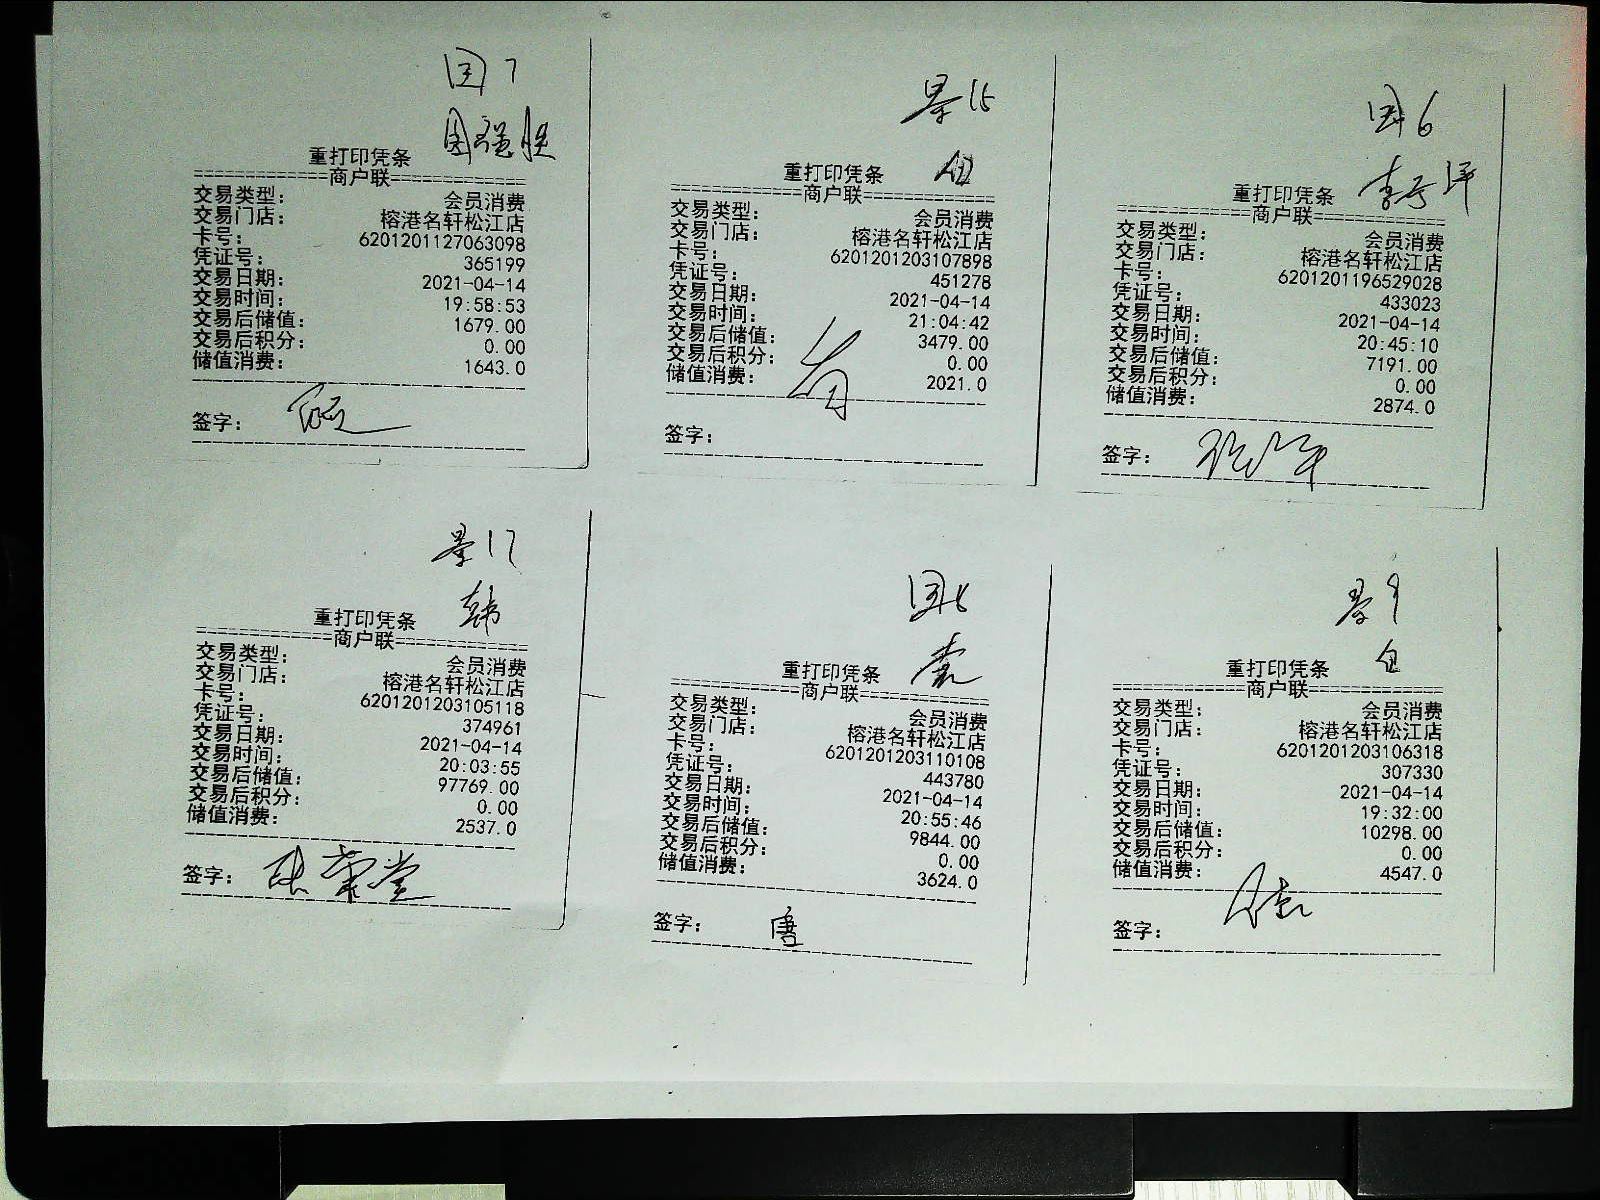 国7
重打印凭条
商户联
交易类型: 会员消费
交易门店: 榕港名轩松江店
卡号: 6201201127063098
凭证号: 365199
交易日期: 2021-04-14
交易时间: 19:58:53
交易后储值: 1679.00
交易后积分: 0.00
储值消费: 1643.0
签字:
景15
重打印凭条
商户联
交易类型: 会员消费
交易门店: 榕港名轩松江店
卡号: 6201201203107898
凭证号: 451278
交易日期: 2021-04-14
交易时间: 21:04:42
交易后储值: 3479.00
交易后积分: 0.00
储值消费: 2021.0
签字:
国6
重打印凭条
商户联
交易类型: 会员消费
交易门店: 榕港名轩松江店
卡号: 6201201196529028
凭证号: 433023
交易日期: 2021-04-14
交易时间: 20:45:10
交易后储值: 7191.00
交易后积分: 0.00
储值消费: 2874.0
签字:
景17
韩
重打印凭条
商户联
交易类型: 会员消费
交易门店: 榕港名轩松江店
卡号: 6201201203105118
凭证号: 374961
交易日期: 2021-04-14
交易时间: 20:03:55
交易后储值: 97769.00
交易后积分: 0.00
储值消费: 2537.0
签字:
国8
重打印凭条
商户联
交易类型: 会员消费
交易门店: 榕港名轩松江店
卡号: 6201201203110108
凭证号: 443780
交易日期: 2021-04-14
交易时间: 20:55:46
交易后储值: 9844.00
交易后积分: 0.00
储值消费: 3624.0
签字: 唐
景9
重打印凭条
商户联
交易类型: 会员消费
交易门店: 榕港名轩松江店
卡号: 6201201203106318
凭证号: 307330
交易日期: 2021-04-14
交易时间: 19:32:00
交易后储值: 10298.00
交易后积分: 0.00
储值消费: 4547.0
签字: